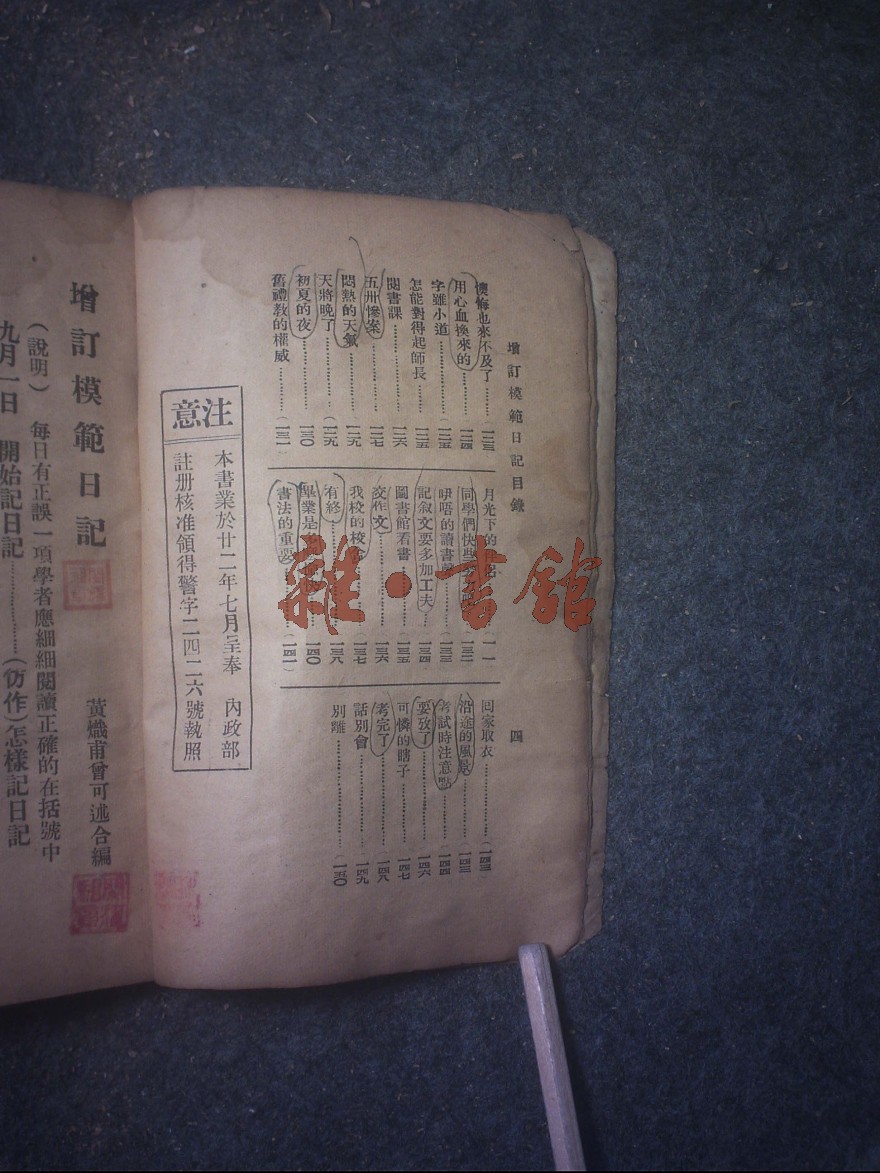 增訂模範日記目錄
四
懊悔也來不及了…………(一二三
用心血換來的…………(一二四
字雖小道…………(一二五
怎能對得起師長…………(一二五
閱書課…………(一二六
五卅慘案…………(一二七
悶熱的天氣…………(一二九
天將晚了…………(一二九
初夏的夜…………(一三〇
舊禮教的權威…………(一三一
月光下的
同學們快些 (一三二
咿唔的讀書 (一三三
記叙文要多加工夫…(一三四
圖書館看書 (一三五
交作文…………(一三六
我校的校 (一三七
有終 (一三八
畢業是 (一四〇
書法的重要 (一四一
回家取衣…………(一四二
沿途的風景…………(一四三
考試時注意點…………(一四四
要攷了…………(一四六
可憐的瞎子…………(一四七
考完了…………(一四八
話別會…………(一四九
別離…………(一五〇
注意
本書業於廿二年七月呈奉 內政部
註册核准領得警字二四二六號執照
增訂模範日記
黃熾甫曾可述合編
(說明) 每日有正誤一項學者應細細閱讀正確的在括號中
九月一日 開始記日記…………(仿作)怎樣記日記
雜·書館